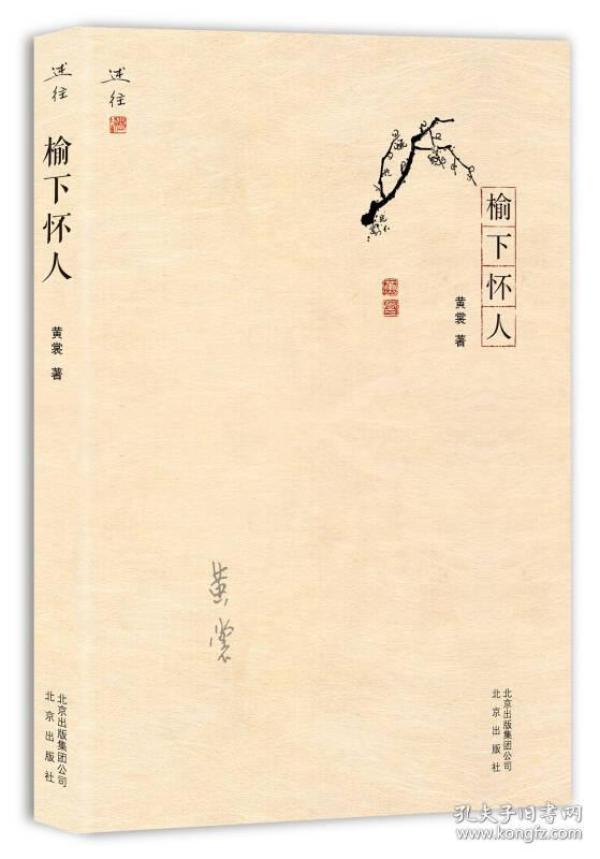 述往
榆下怀人
黄裳 著
北京出版集团公司
北京出版社
述往
榆下怀人
黄裳 著
黄裳
北京出版集团公司
北京出版社
孔夫子旧书网
www.kongfz.com